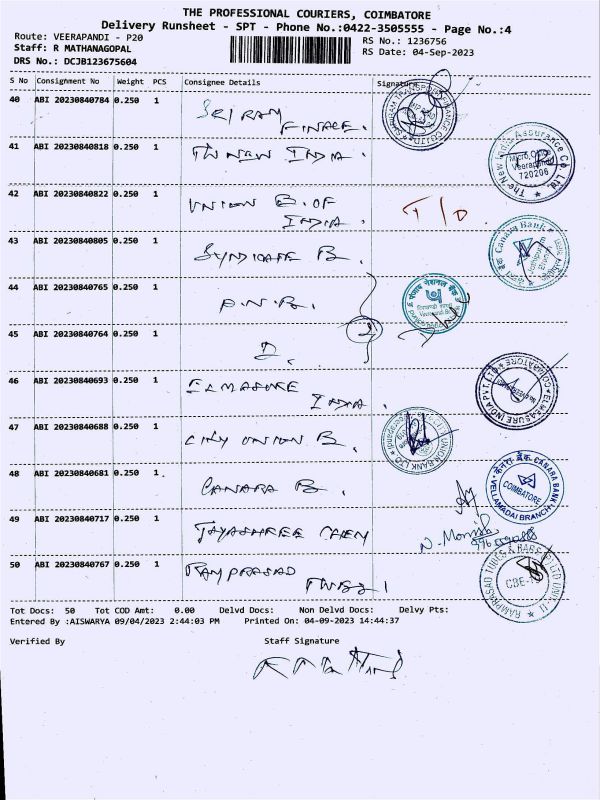 THE PROFESSIONAL COURIERS, COIMBATORE
Delivery Runsheet - SPT - Phone No.:0422-3505555 - Page No.:4
Route: VEERAPANDI - P20
RS No.: 1236756
Staff: R MATHANAGOPAL
RS Date: 04-Sep-2023
DRS No.: DCJB123675604
S No Consignment No Weight PCS Consignee Details Signature
40 ABI 20230840784 0.250 1 SRI RAM
FINANCE.
41 ABI 20230840818 0.250 1 TH NEW INDIA.
The New India Assurance Co. Ltd.
Micro Office
Veerapandi
720206
42 ABI 20230840822 0.250 1 UNION B. OF
INDIA. T/O
43 ABI 20230840805 0.250 1 SYNDICATE B.
Canara Bank
44 ABI 20230840765 0.250 1 P.N.B.
पंजाब नैशनल बैंक
45 ABI 20230840764 0.250 1 D. 2
46 ABI 20230840693 0.250 1 ELMASURE
INDIA.
ELMEASURE INDIA PVT. LTD.
COIMBATORE
47 ABI 20230840688 0.250 1 CITY UNION B.
UNION BANK LTD
48 ABI 20230840681 0.250 1 CANARA B.
केनरा बैंक CANARA BANK
COIMBATORE
VELLAMADAI BRANCH
49 ABI 20230840717 0.250 1 JAYASHREE CHEM
N. Monish
50 ABI 20230840767 0.250 1 RAMPRASAD
TUBES
RAMPRASAD TUBES & BARS P LTD UNIT-II
CBE-19
Tot Docs: 50 Tot COD Amt: 0.00 Delvd Docs: Non Delvd Docs: Delvy Pts:
Entered By :AISWARYA 09/04/2023 2:44:03 PM Printed On: 04-09-2023 14:44:37
Verified By Staff Signature